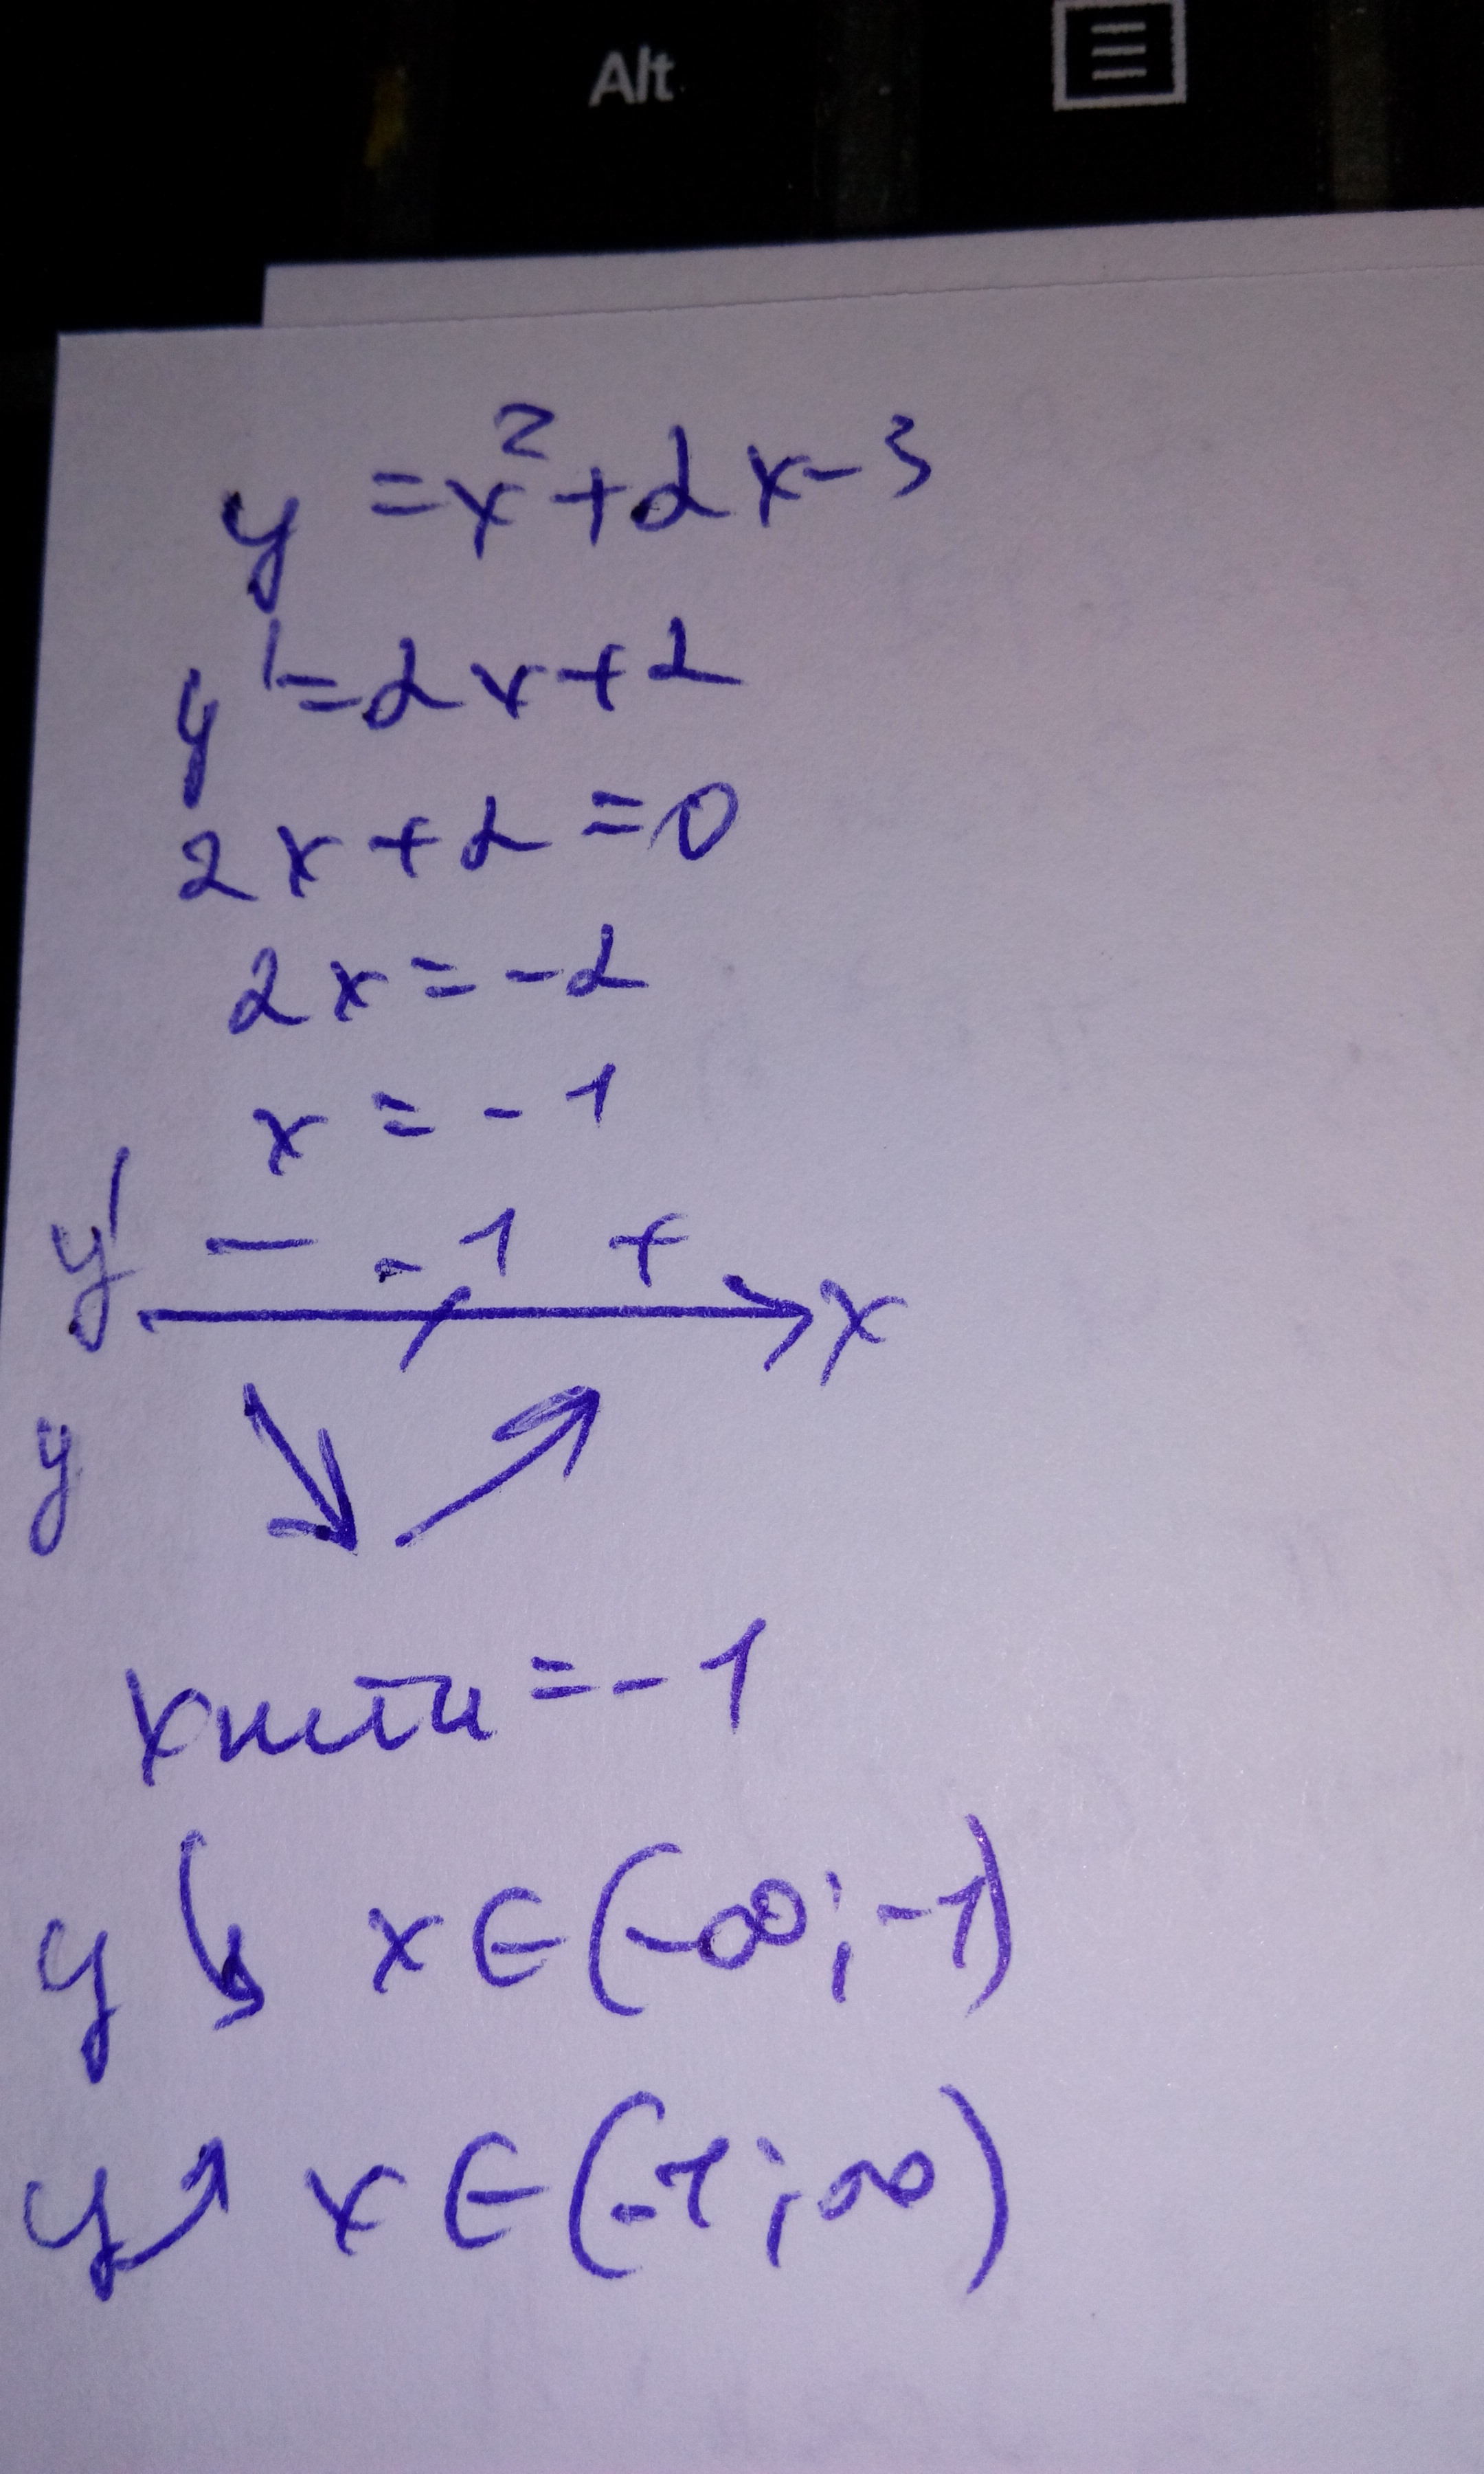 Alt
y = x² + 2x - 3
y' = 2x + 2
2x + 2 = 0
2x = -2
x = -1
y' - -1 + x
y ↘ ↗
xmin = -1
y ↘ x ∈ (-∞; -1)
y ↗ x ∈ (-1; ∞)